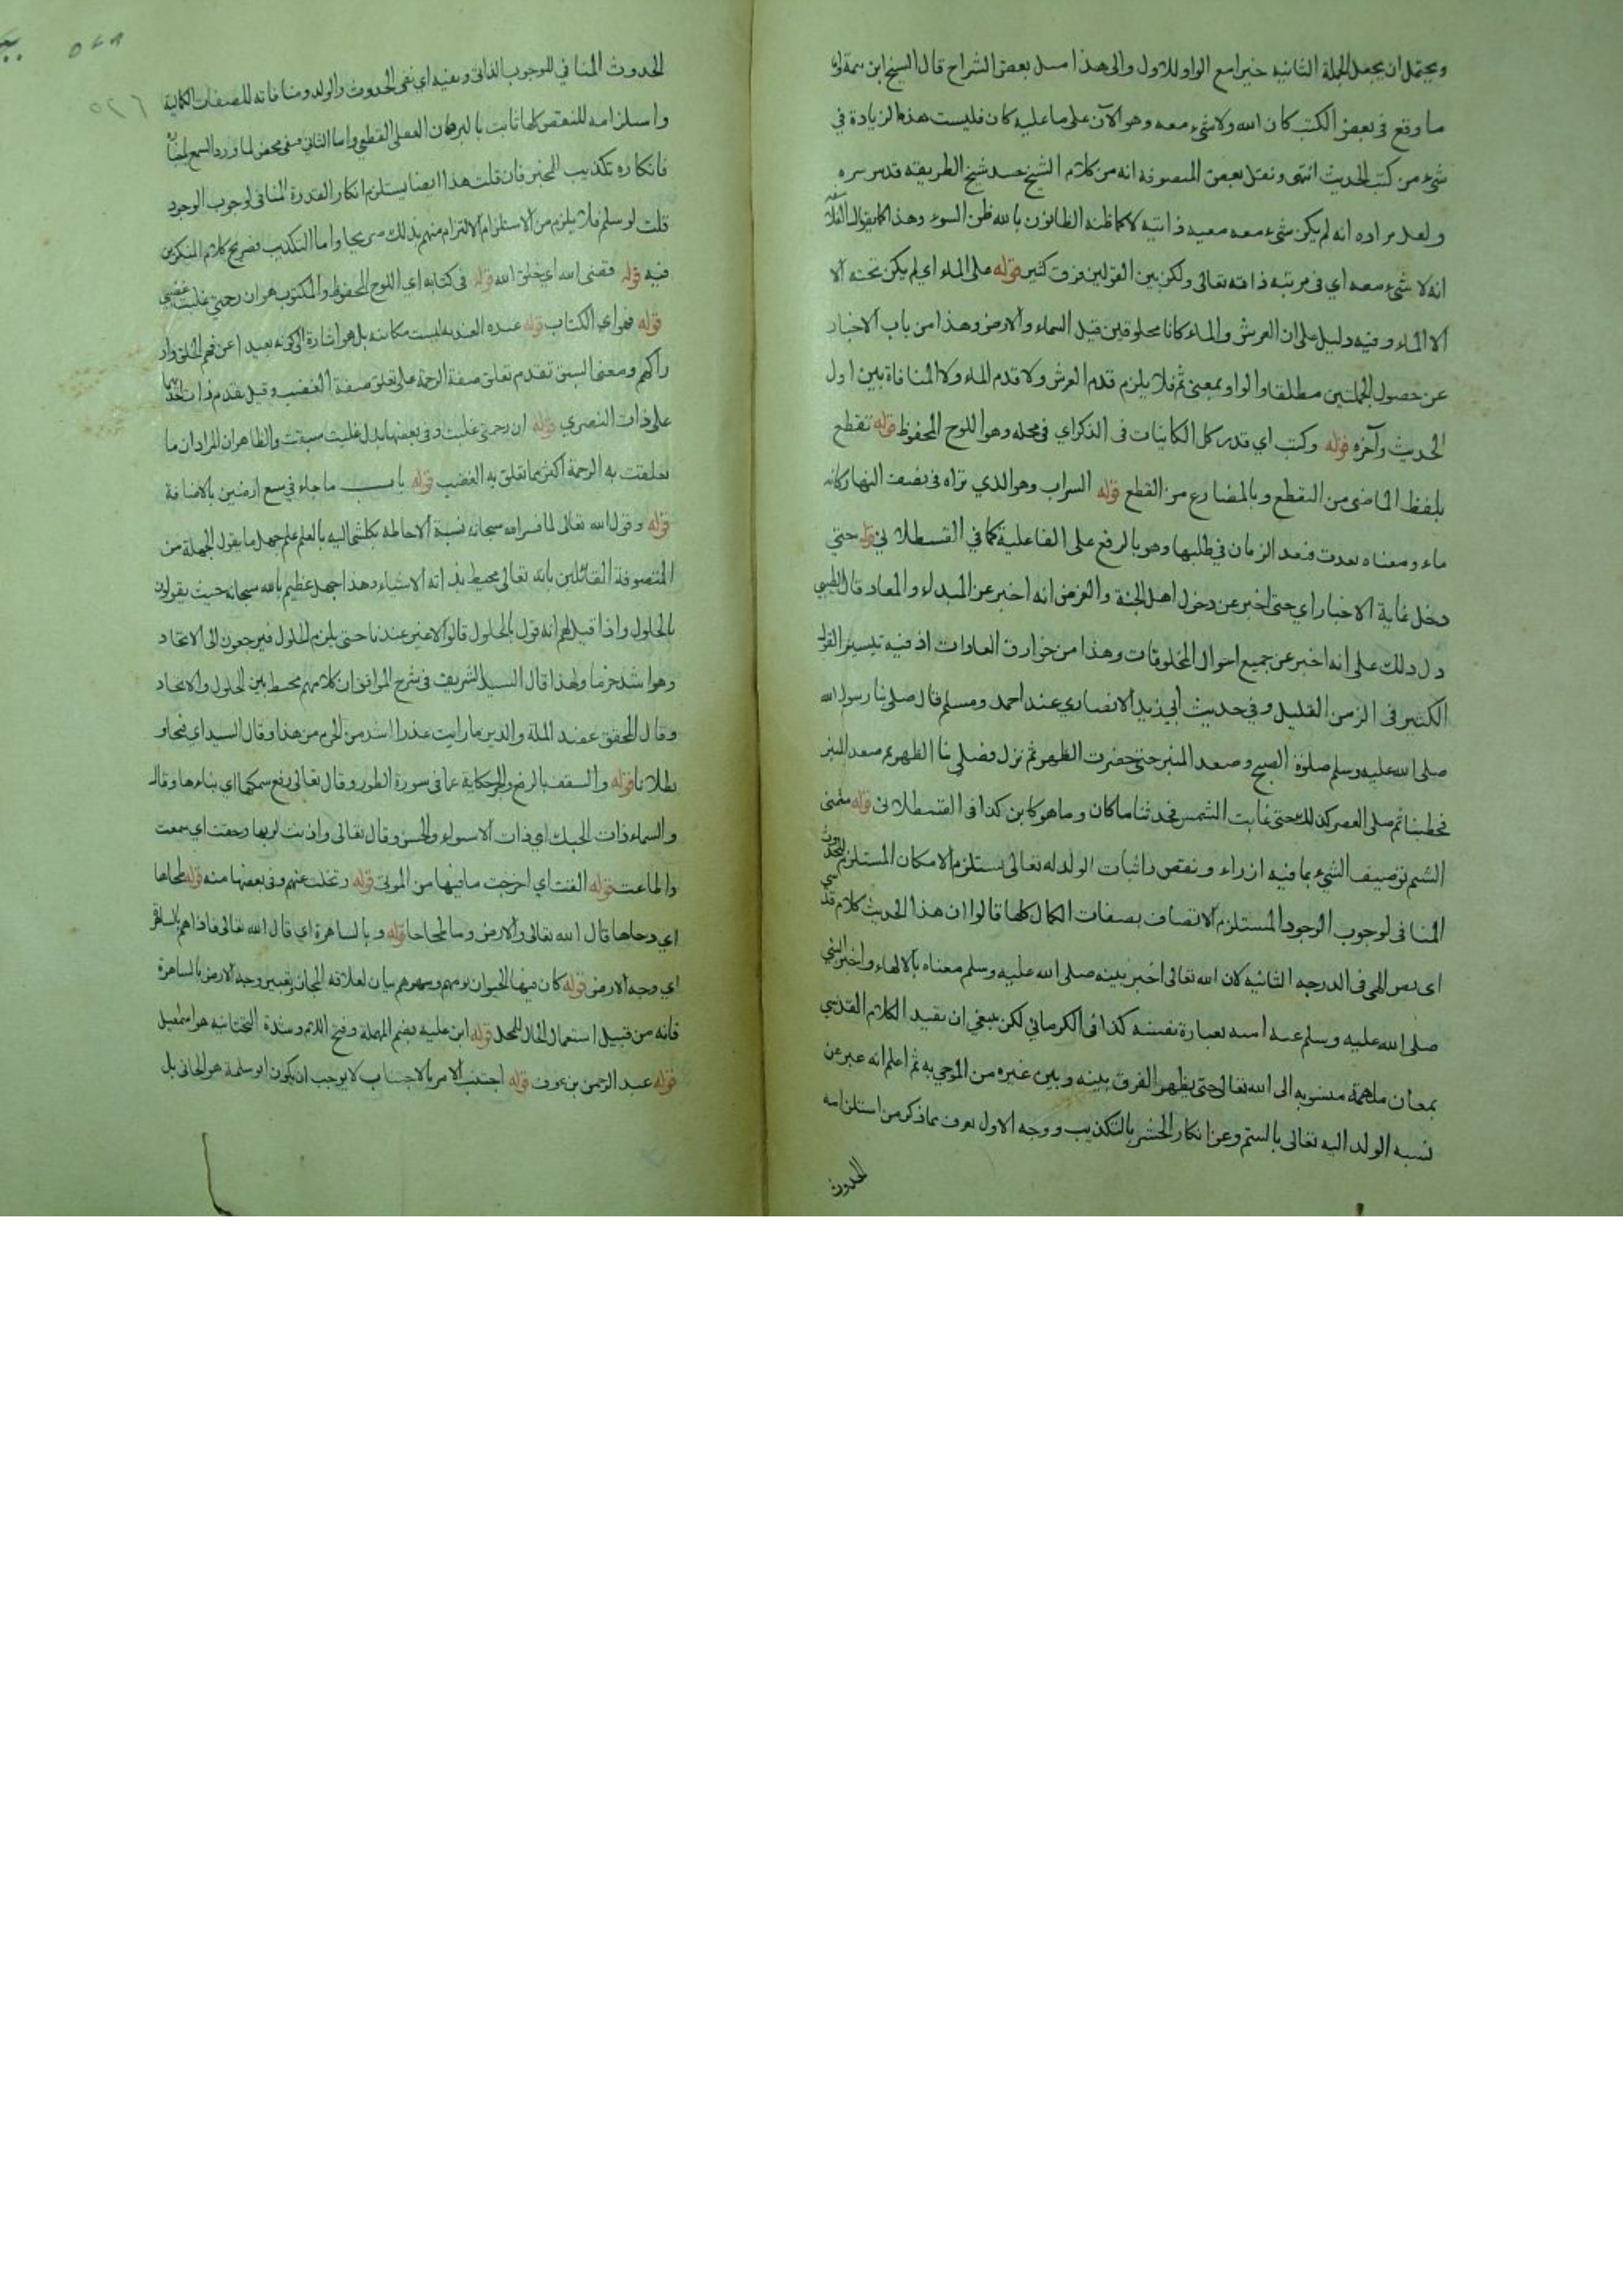 ويحتمل ان يجعل الجملة الثانية خبرا مع الواو للاول والى هذا ميل بعض الشراح قال الشيخ ابن
ما وقع في بعض الكتب كان الله ولا شيء معه وهو الآن على ما عليه كان فليست هذه الزيادة في
شيء من كتب الحديث انتهى ونقل بعض المتصوفة انه من كلام الشيخ شيخ الطريقة قدس سره
ولعل مراده انه لم يكن شيء معه معية ذاتية لا كما ظنه الظانون بالله ظن السوء وهذا كما يقول الفلاسفة
انه لا شيء معه اي في مرتبة ذاته تعالى ولكن بين القولين فرق كثير قوله على الماء اي لم يكن تحته الا
الا الماء وفيه دليل على ان العرش والماء كانا مخلوقين قبل السماء والارض وهذا من باب الاخبار
عن حصول الجملتين مطلقا والواو بمعنى ثم فلا يلزم قدم العرش ولا قدم الماء ولا المنافاة بين اول
الحديث وآخره قوله وكتب اي قدر كل الكائنات في الذكر اي في محله وهو اللوح المحفوظ قوله تقطع
بلفظ الماضي من التقطع وبالمضارع من القطع قوله السراب وهو الذي تراه في نصف النهار كانه
ماء ومعناه بعدت فبعد الزمان في طلبها وهو بالرفع على الفاعلية كما في القسطلاني قوله حتى
دخل غاية الاخبار اي حتى اخبر عن دخول اهل الجنة والغرض انه اخبر عن المبداء والمعاد قال الطيبي
دل ذلك على انه اخبر عن جميع احوال المخلوقات وهذا من خوارق العادات اذ فيه تيسير القول
الكثير في الزمن القليل وفي حديث أبي زيد الانصاري عند احمد ومسلم قال صلى بنا رسول الله
صلى الله عليه وسلم صلوة الصبح وصعد المنبر حتى حضرت الظهر ثم نزل وصلى بنا الظهر ثم صعد المنبر
فخطبنا ثم صلى العصر كذلك حتى غابت الشمس فحدثنا ما كان وما هو كاين كذا في القسطلاني قوله شتمني
الشتم توصيف الشيء بما فيه ازراء ونقص واثبات الولد له تعالى يستلزم الامكان المستلزم للحدوث
المنافي لوجوب الوجود المستلزم الاتصاف بصفات الكمال كلها قالوا ان هذا الحديث كلام قدسي
اي نص الهي في الدرجة الثانية لان الله تعالى اخبر نبيه صلى الله عليه وسلم معناه بالالهام واخبر النبي
صلى الله عليه وسلم عنه امته بعبارة نفسه كذا في الكرماني لكن ينبغي ان نقيد الكلام القدسي
بمعان ملهمة منسوبه الى الله تعالى حتى يظهر الفرق بينه وبين غيره من الموحي به ثم اعلم انه عبر عن
نسبه الولد اليه تعالى بالشتم وعن انكار الحشر بالتكذيب ووجه الاول يعرف مما ذكر من استلزامه
الحدوث
الحدوث المنافي للوجوب الذاتي ونفيه اي نفي الحدوث والولد ومنافاته للصفات الكمالية
واستلزامه للنقص كلها ثابت بالبرهان العقلي القطعي واما الثاني فنفي محض لما ورد السمع
فانكاره تكذيب للخبر فان قلت هذا ايضا يستلزم انكار القدرة المنافي لوجوب الوجود
قلت لو سلم فلا يلزم من الاستلزام الالتزام منهم بذلك صريحا واما التكذيب فصريح كلام المنكرين
فيه قوله قضى الله اي خلق الله قوله في كتابه اي اللوح المحفوظ والمكتوب هو ان رحمتي غلبت غضبي
قوله فهو اي الكتاب قوله عنده العنديه ليست مكانيه بل هو اشارة الى كونه بعيدا عن فهم الخلق
ومعنى السبق تقدم تعلق صفة الرحمة على تعلق صفة الغضب وقيل تقدم ذات
على ذات قوله ان رحمتي غلبت وفي بعضها بدل غلبت سبقت والظاهر ان المراد ان ما
تعلقت به الرحمة اكثر مما تعلق به الغضب قوله باب ما جاء في سبع ارضين بالاضافة
قوله وقول الله تعالى لما فسر الله سبحانه نسبة الاحاطة بكل شيء اليه بالعلم علم جهل ما يقول الجهلة من
المتصوفة القائلين بانه تعالى محيط بذاته الاشياء وهذا جهل عظيم بالله سبحانه حيث يقولون
بالحلول واذا قيل لهم انه قول بالحلول قالوا لا غير عندنا حتى يلزم الحلول فيرجعون الى الاتحاد
وهو اشد جرما ولهذا قال السيد الشريف في شرح المواقف ان كلامهم مخبط بين الحلول والاتحاد
وقال المحقق عضد الملة والدين ما رايت عذرا اشد من الجرم من هذا وقال السيد اي
بطلانا قوله والسقف بالرفع والجر حكاية عما في سورة الطور وقال تعالى رفع سمكها اي بناءها وقال
والسماء ذات الحبك اي ذات الاستواء والحسن وقال تعالى واذنت لربها وحقت اي سمعت
واطاعت قوله القت اي اخرجت ما فيها من الموتى قوله وتخلت عنهم وفي بعضها منه قوله طحاها
اي دحاها قال الله تعالى والارض وما طحاها قوله وبالساهرة اي قال الله تعالى فاذا هم بالساهرة
اي وجه الارض قوله كان فيها الحيوان نومهم وسهرهم بيان لعلاقة المجاز وتعبير وجه الارض بالساهرة
فانه من قبيل استعمال الحال للمحل قوله ابن علية بضم المهملة وفتح اللام وشدة التحتانية هو اسمعيل
قوله عبد الرحمن بن عوف قوله اجتنب الامر بالاجتناب لا يوجب ان يكون ابو سلمة هو الجاني بل